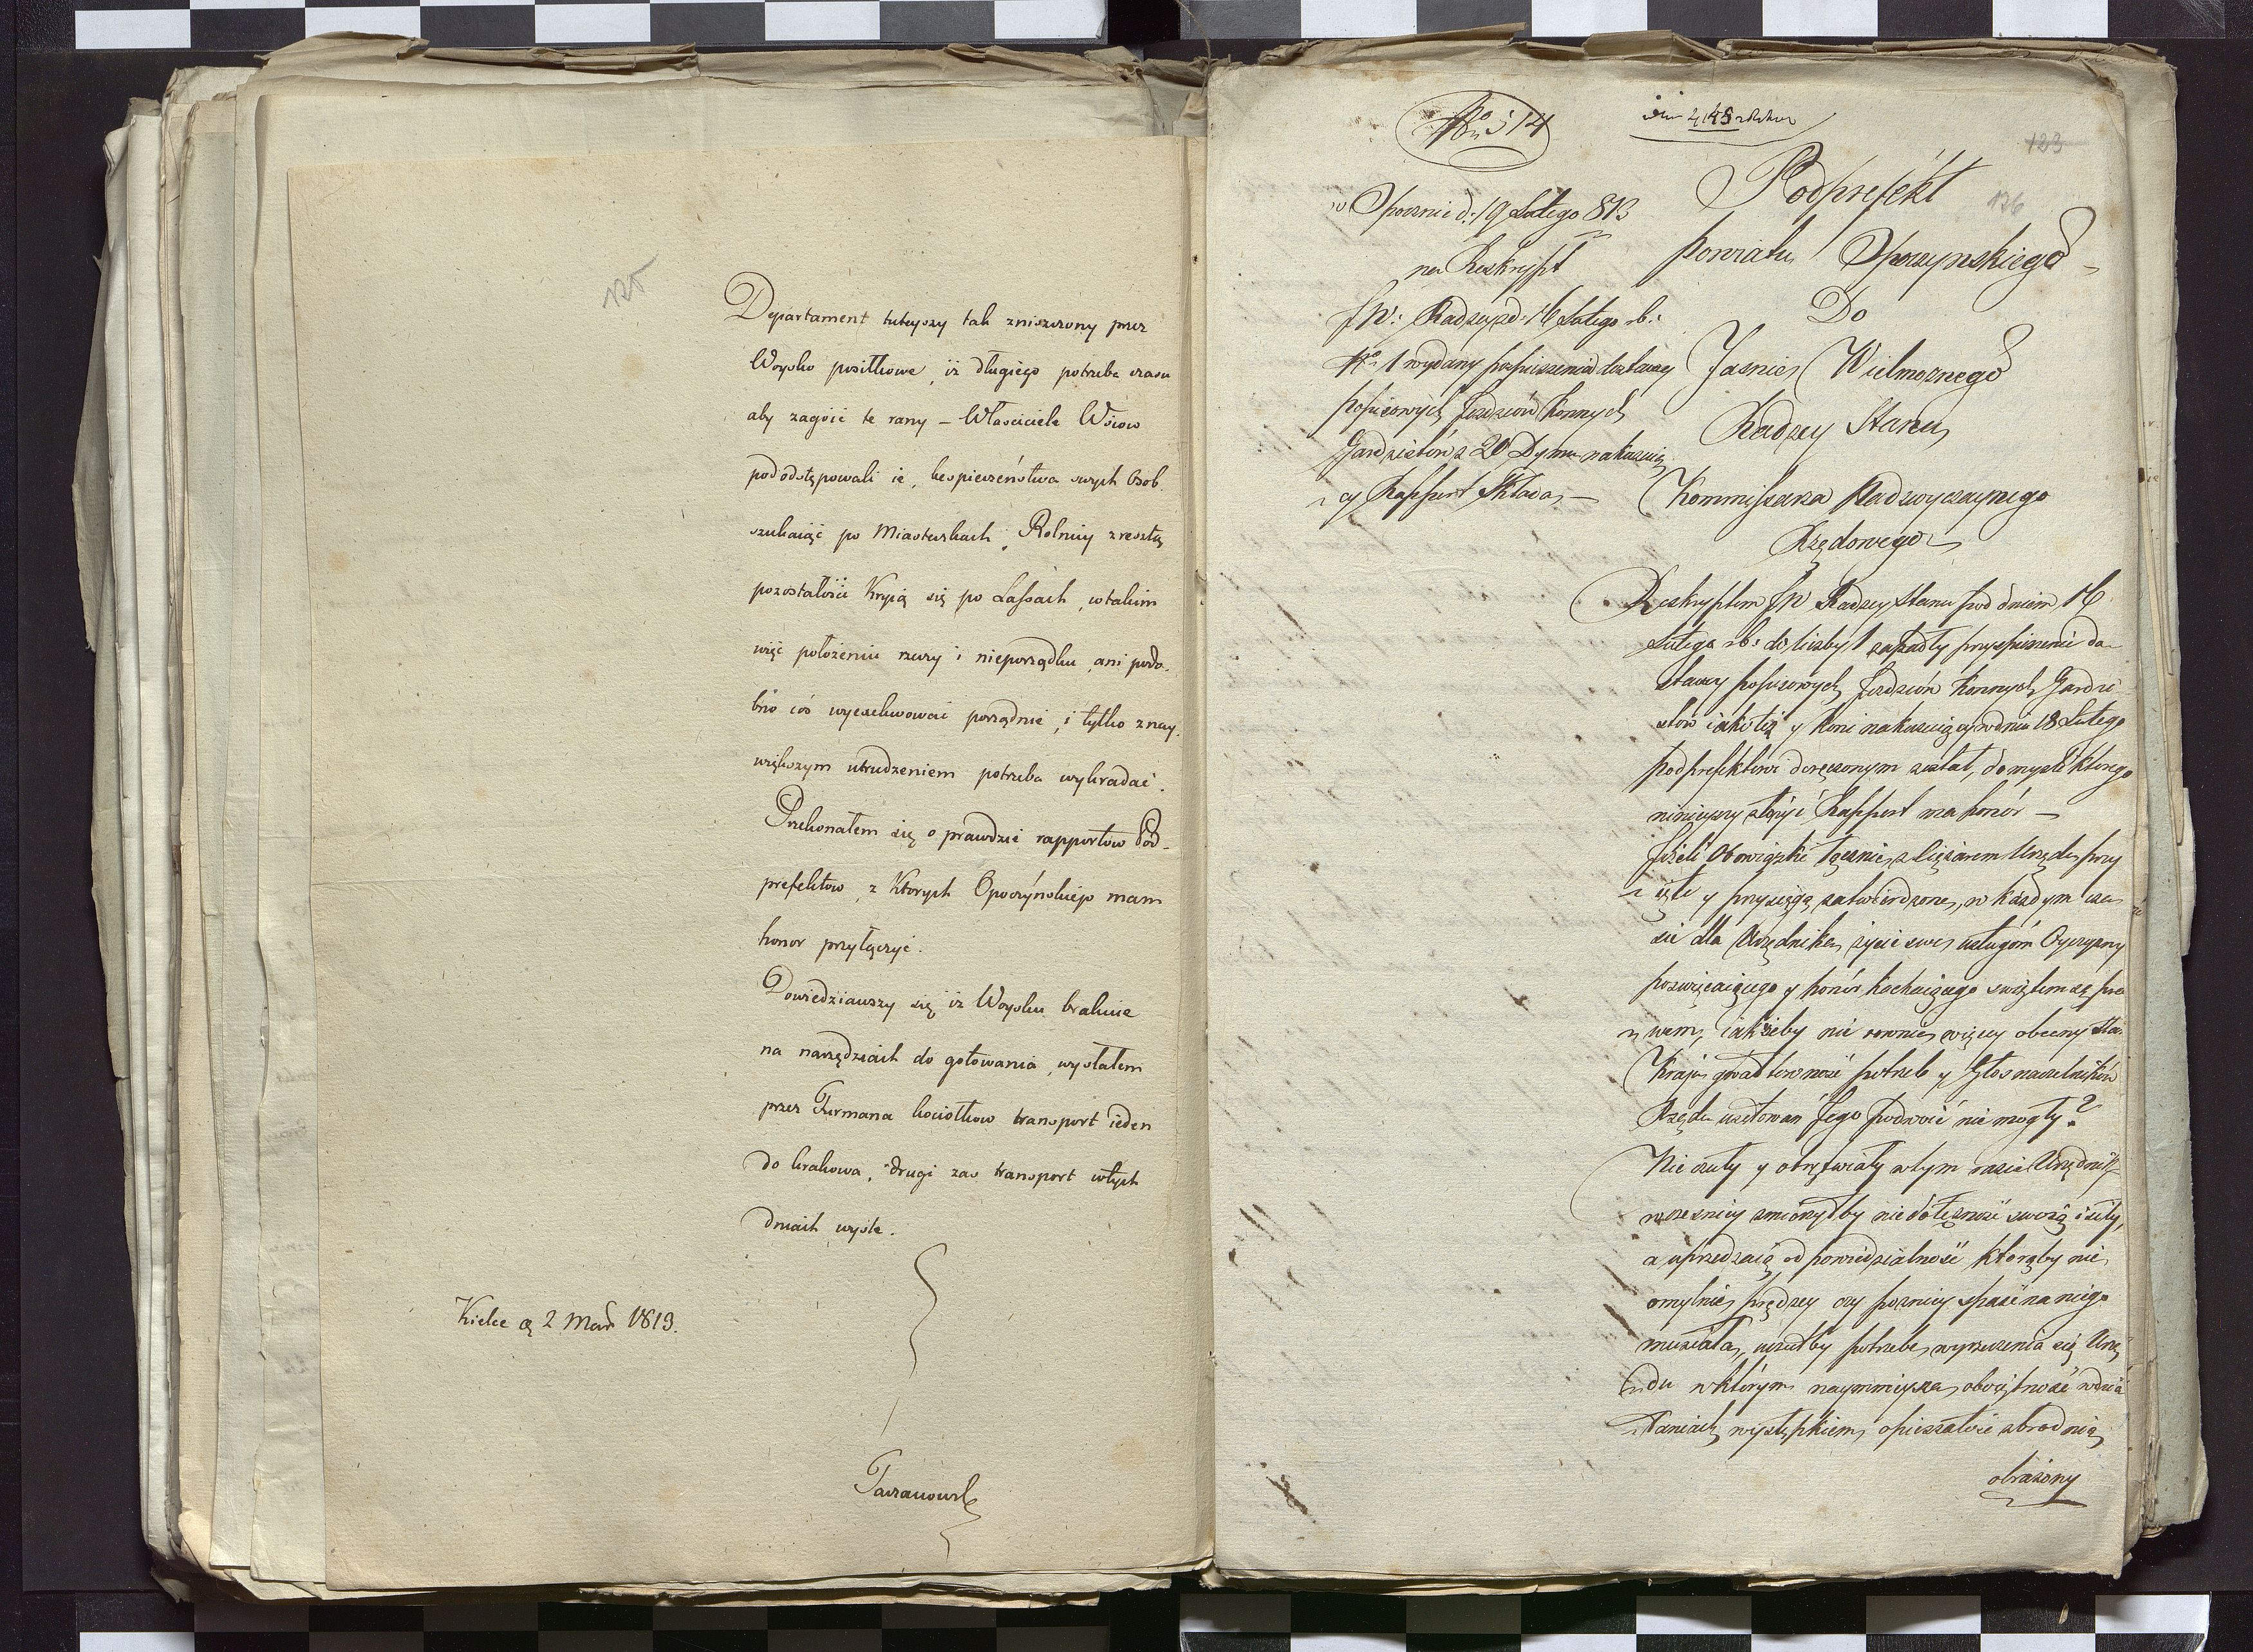 125
Departament tuteyszy tak zniszczony przez
Woysko posiłkowe, iż długiego potrzeba czasu
aby zagoić te rany – Właściciele Wsiow
pododstępowali ie, bespieczeństwa swych Osob
szukaiąć po Miasteczkach, Rolnicy z resztą
pozostałości Kryią się po Lassach, w takim
więc położeniu rzeczy i nieporządku, ani podo-
bno coś wyexekwować porządnie, i tylko z nay-
większym utrudzeniem potrzeba wykradać.
Przekonałem się o prawdzie rapportow Pod-
prefektow, z Ktorych Opoczyńskiego mam
honor przyłączyć.
Dowiedziawszy się iż Woysku braknie
na narzędziach do gotowania, wysłałem
przez Furmana kociołkow transport ieden
do krakowa, drugi zas transport w tych
dniach wyśle.
Kielce d 2 Mar 1813.
Tarnawsk
No 514
123
126
w Opocznie d: 19 Lutego 813
na Reskrypt
JW: Radzcy z d: 16 Lutego r. b:
No 1 wydany pospieszenia dostawy
popisowych Jezdzców konnych
Gardzistów z 20 Dymu nakazuią
cy Rapport Składa –
Podprefekt
Powiatu Opoczynskiego
Do
Jasnie Wielmoznego
Radzcy Stanu
Kommissarza Nadzwyczaynego
Rządowego
Reskryptem JW Radzcy Stanu pod dniem 16
Lutego r. b: do liczby 1 zapadły przyspieszenie do-
stawy popisowych Jezdzców konnych Gardzi
stów iako też y koni nakazuiący w dniu 18 Lutego
podprefektowi doręczonym został, do myśli ktorego
ninieyszy złożyć Rapport ma honór –
Jeżeli Obowiązki łącznie z Ciężarem Urzędu przy
ięte y przysięgą zatwierdzone, w każdym cza
sie dla Urzędnika życie swe usługóm Oyczyzny
poswięcaiącego y honór kochaiącego swiętem są pra
wem, iakżeby nie rownie więcy obecny Stan
Kraju gwałtowność potrzeb y Głos naczelników
Rządu usiłowan Jego podwoić nie mogły?
Nie czuły y obrętwiały w tym razie Urzędnik
wczesniey zmiorzyłby niedołężność swoią i siły,
a uprzedzaią odpowiedzialność ktoraby nie
omylnie prędzey czy pozniey spaść na niego
musiała, uczułby potrzebe wyrzeczenia się Urzę
du w którym naymnieysza oboiętność w dzia
łaniach występkiem, opieszałość zbrodnią
obrażony